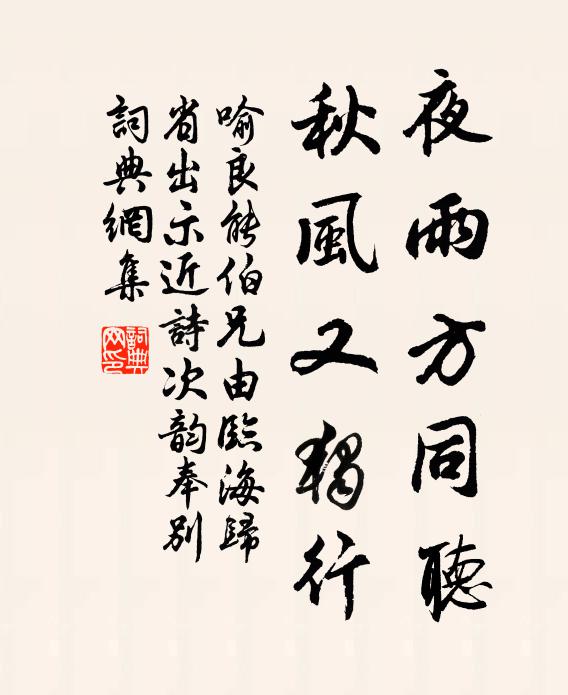 夜雨方同聽
秋風又獨行
喻良能伯兄由臨海歸
省出示近詩次韵奉別
詞典網集
詞典
网印